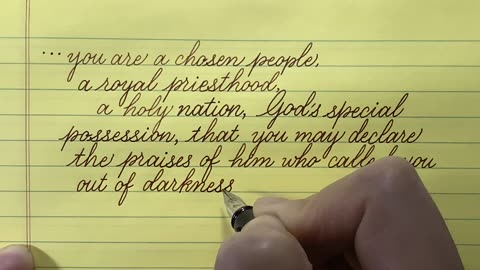 ... you are a chosen people,
a royal priesthood,
a holy nation, God's special
possession, that you may declare
the praises of him who called you
out of darkness